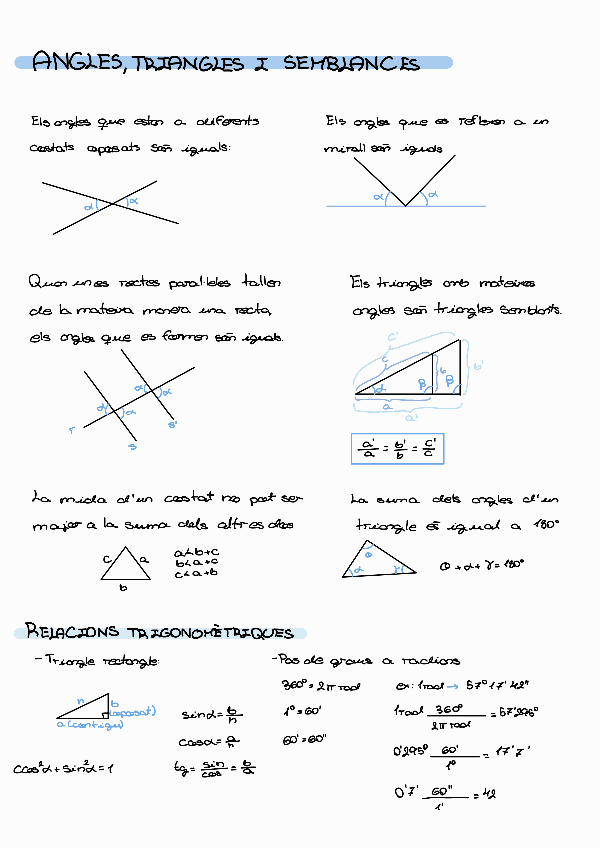 ANGLES, TRIANGLES I SEMBLANCES
Els angles que estan a diferents
costats oposats són iguals:
α α
Els angles que es reflexen a un
mirall són iguals
α α
Quan unes rectes paral·leles tallen
de la mateixa manera una recta,
els angles que es formen són iguals.
α α
α α
r s s'
Els triangles amb mateixos
angles són triangles semblants.
c'
c
α β b β b'
a
a'
a'/a = b'/b = c'/c
La mida d'un costat no pot ser
major a la suma dels altres dos
c a
b
a<b+c
b<a+c
c<a+b
La suma dels angles d'un
triangle és igual a 180°
θ
α γ
θ + α + γ = 180°
RELACIONS TRIGONOMÈTRIQUES
- Triangle rectangle:
h b
(oposat)
a (contigu)
sinα = b/h
cosα = a/h
tg = sin/cos = b/a
cos²α + sin²α = 1
- Pas de graus a radians
360° = 2π rad
1° = 60'
60' = 60"
ex: 1rad → 57° 17' 42"
1rad 360°/2π rad = 57'295°
0'295° 60'/1° = 17'7'
0'7' 60"/1' = 42